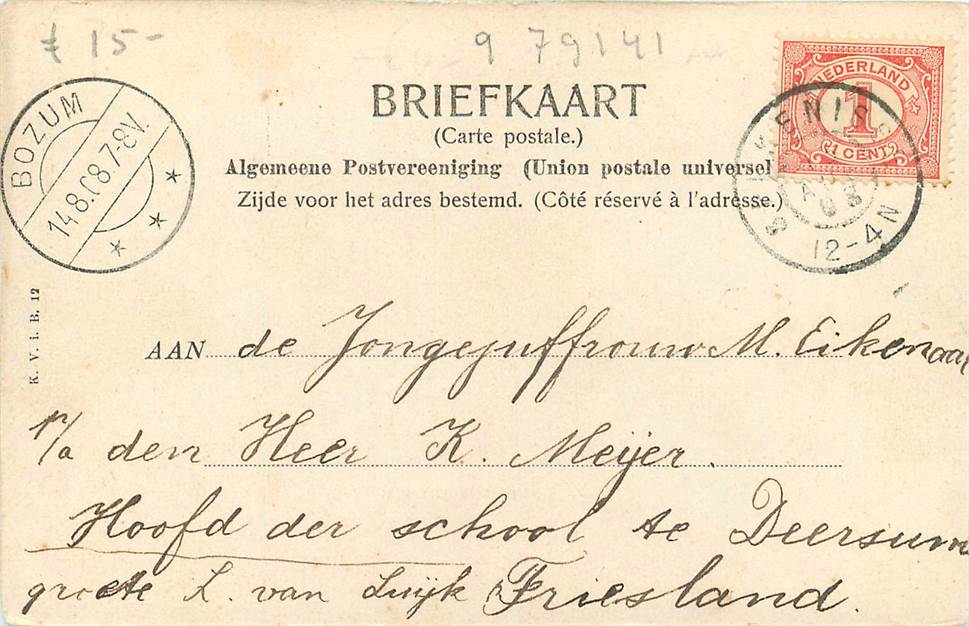 f 15-
9 79141
BOZUM
14.8.08 7-8V.
NEDERLAND
1
1 CENT
12-4N
BRIEFKAART
(Carte postale.)
Algemeene Postvereeniging (Union postale universel
Zijde voor het adres bestemd. (Côté réservé à l'adresse.)
K. V. i. B. 12
AAN de Jongejuffrouw M. Eikenaar
p/a den Heer K. Meijer.
Hoofd der school te Deersum
groete L. van Luijk Friesland.